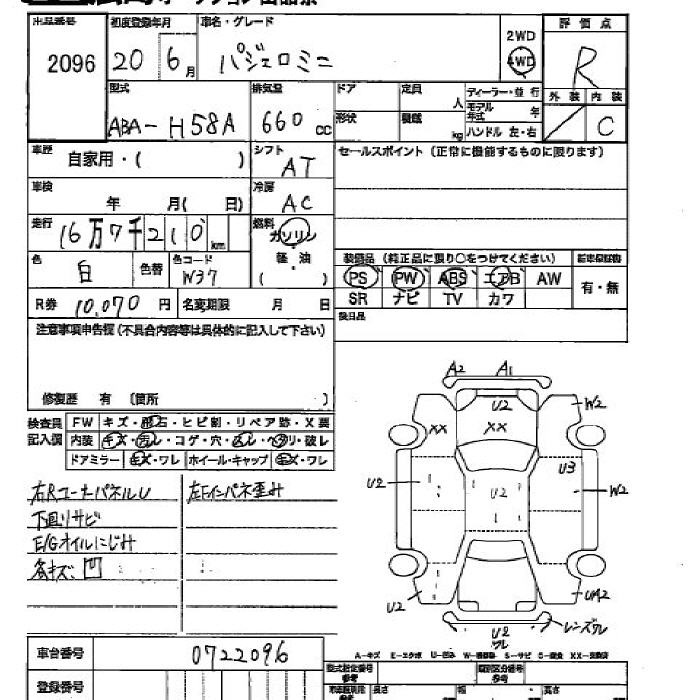 出品番号 初度登録年月 車名・グレード 評価点
2096 20 6月 パジェロミニ 2WD 4WD R
型式 排気量 ドア 定員 人 ディーラー・並行 外装 内装
ABA-H58A 660cc 形状 積載 kg モデル年式 年 C
ハンドル 左・右
車歴 自家用・( ) シフト AT セールスポイント(正常に機能するものに限ります)
車検 年 月( 日) 冷房 AC
走行 16万7千210km 燃料 ガソリン 軽油 ( )
色 白 色替 色コード W37
装備品(純正品に限り○をつけてください) 新車保証書
PS PW ABS エアB AW 有・無
SR ナビ TV カワ
R券 10,070円 名変期限 月 日 後日品
注意事項申告欄(不具合内容等は具体的に記入して下さい)
修復歴 有 〔箇所 〕
検査員記入欄 FW キズ・飛石・ヒビ割・リペア跡・X要
内装 キズ・汚レ・コゲ・穴・スレ・ヘタリ・破レ
ドアミラー キズ・ワレ ホイール・キャップ キズ・ワレ
右Rコーナーパネル U 左Fインパネ歪み
下回りサビ
E/Gオイルにじみ
各キズ、凹
A2 A1
U2 W2
XX XX
U2 U2 U3 W2
U2 U2 UA2
ワレ レンズワレ
A-キズ E-エクボ U-凹み W-補修跡 S-サビ C-腐食 XX-交換済
車台番号 0722096 型式指定番号 参考 類別区分番号 参考
登録番号 長さ 幅 高さ